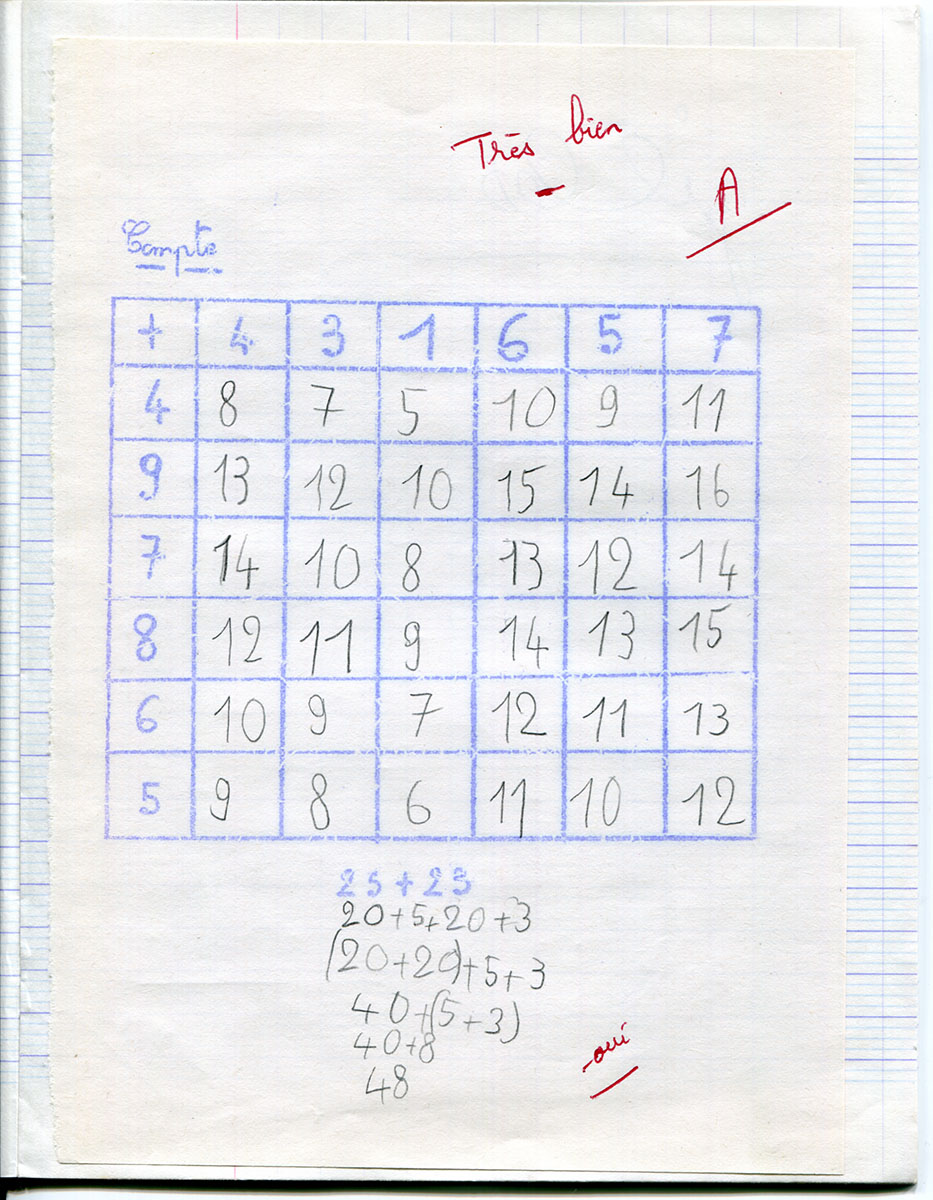 Très bien
A
Compte
+ 4 3 1 6 5 7
4 8 7 5 10 9 11
9 13 12 10 15 14 16
7 14 10 8 13 12 14
8 12 11 9 14 13 15
6 10 9 7 12 11 13
5 9 8 6 11 10 12
25+23
20+5+20+3
(20+20)+5+3
40+(5+3)
40+8
48
oui